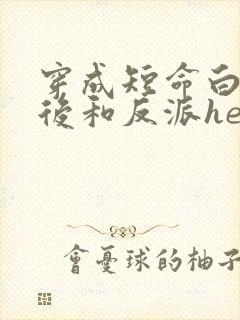 穿成短命白
後和反派he
會憂球的柚子